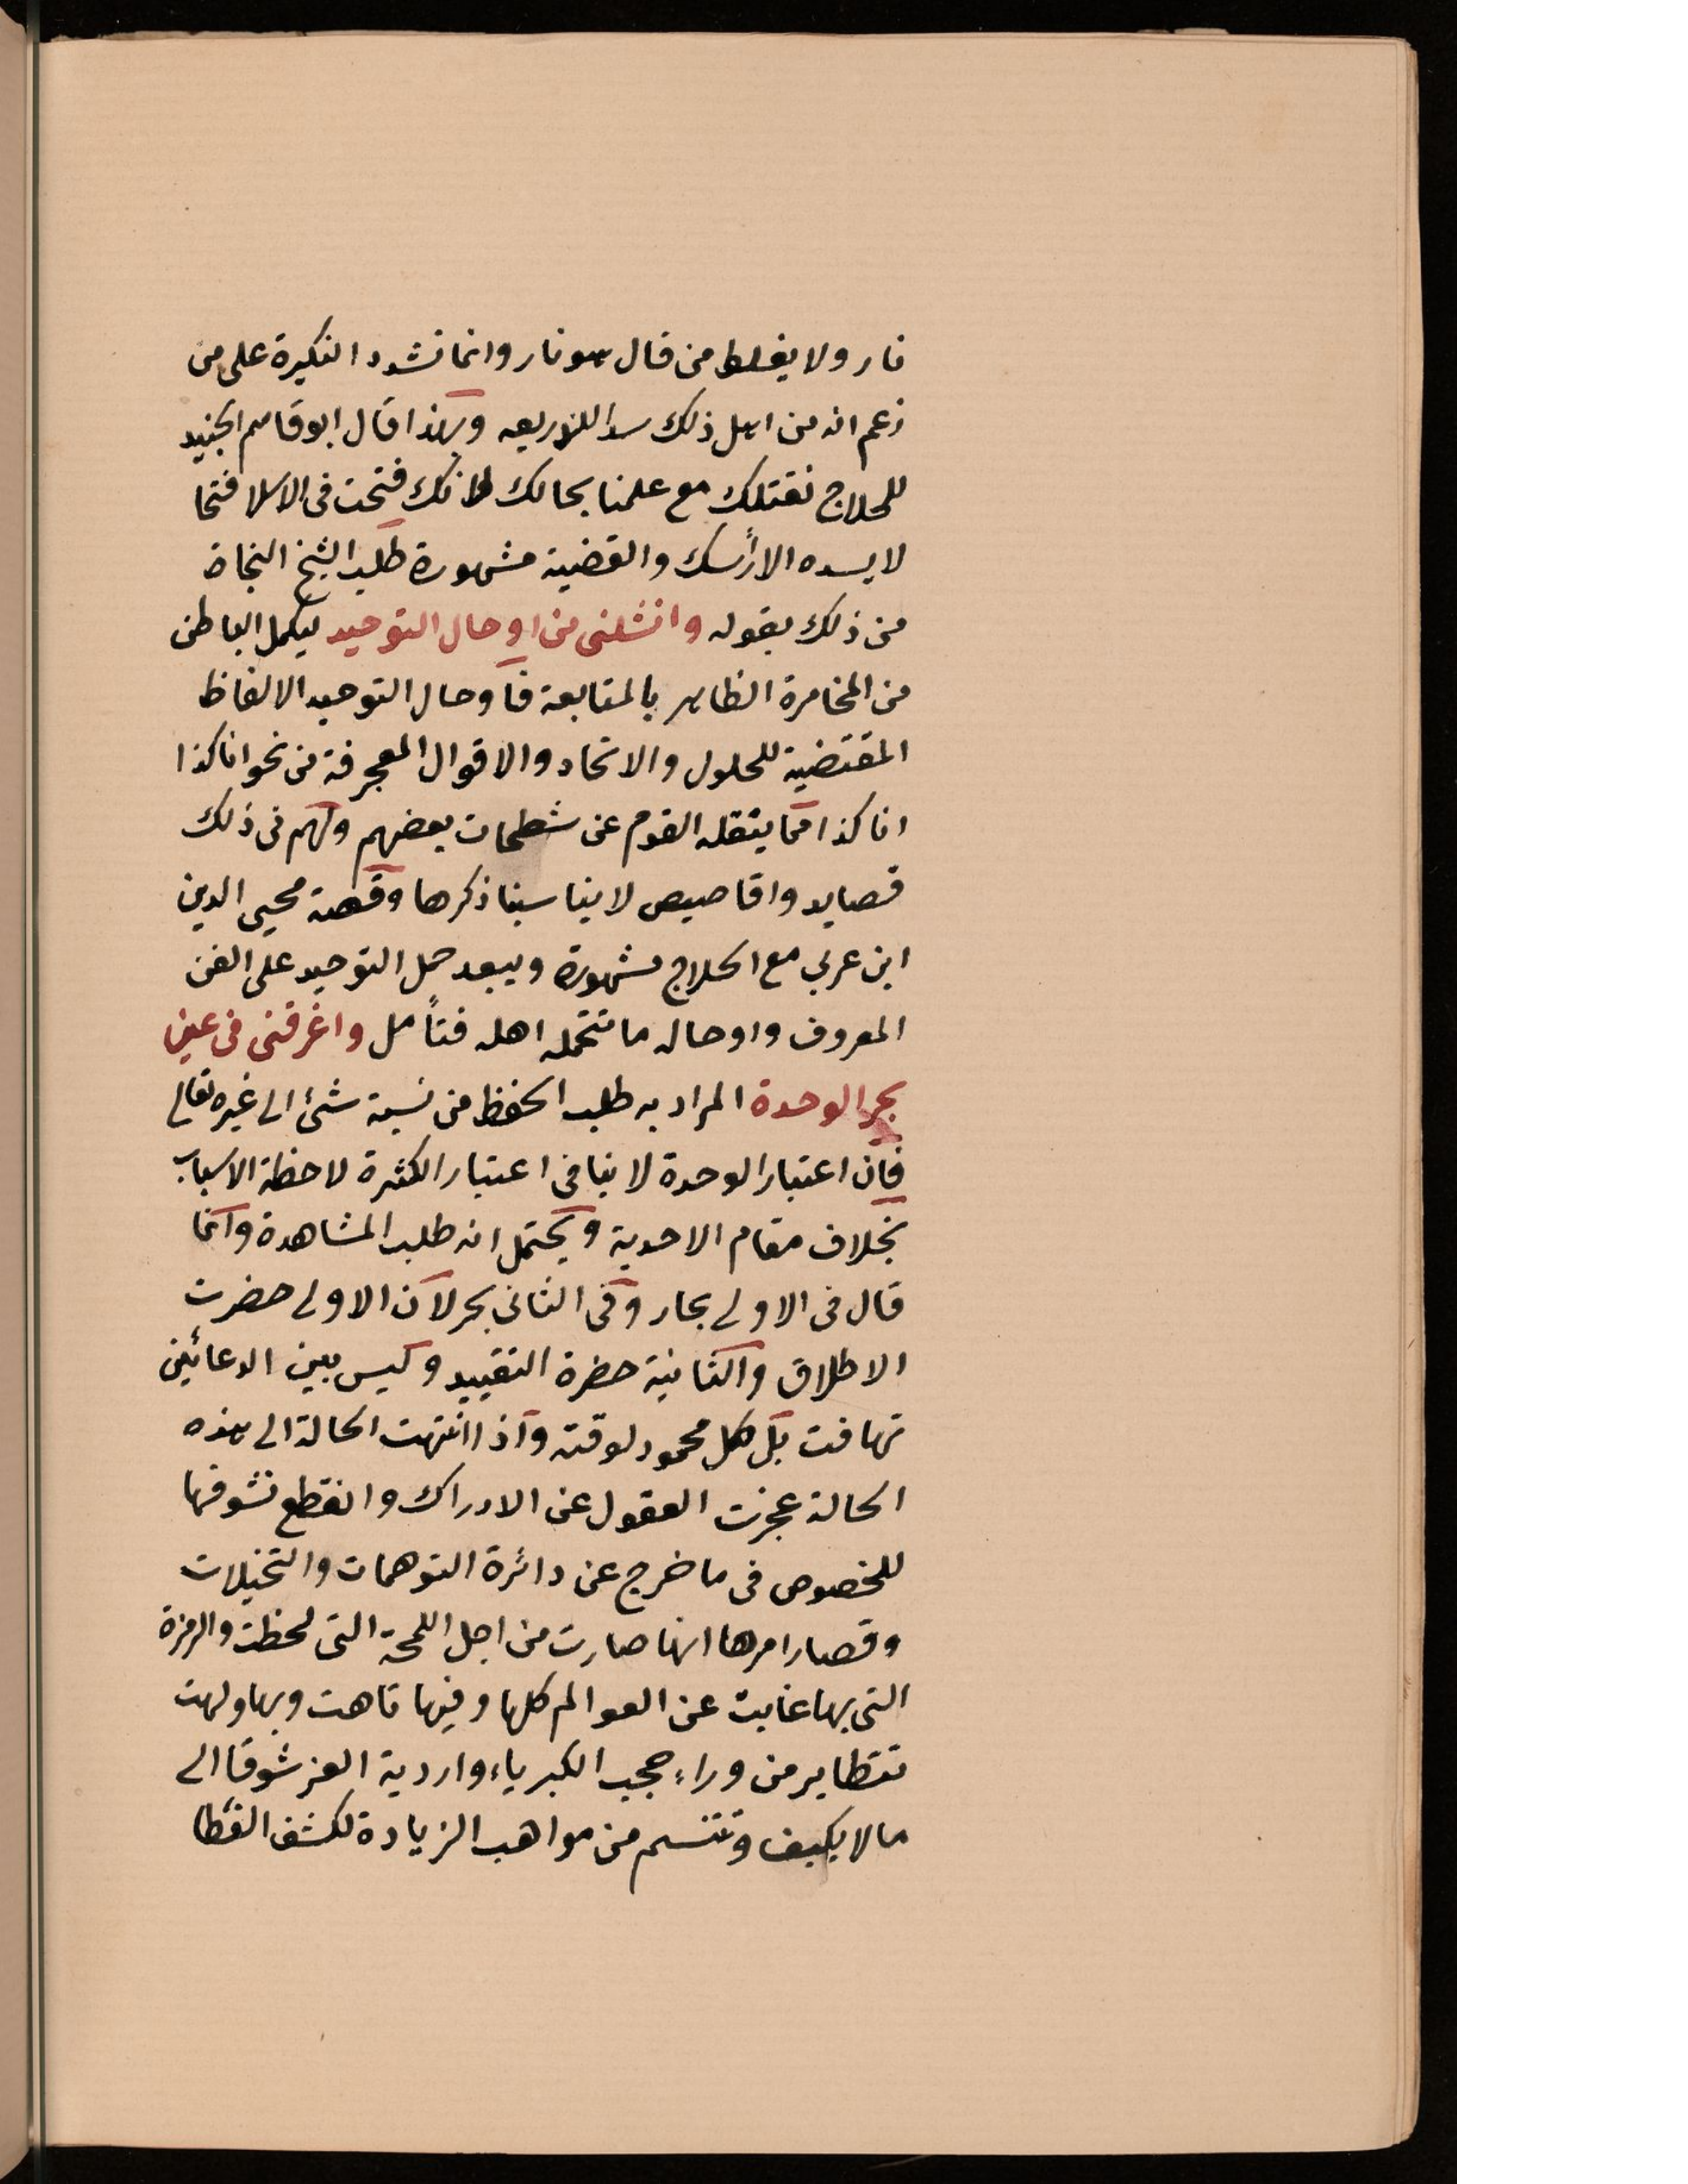 نار ولا يغلط من قال هو نار وانما نشدد النكيرة على من
زعم انه من اهل ذلك سدا للذريعه ولهذا قال ابو قاسم الجنيد
للحلاج نقتلك مع علمنا بحالك لانك فتحت فى الاسلا فتحا
لا يسده الا رأسك والقضية مشهورة طلب الشيخ النجاة
من ذلك بقوله وانشلنى من اوحال التوحيد ليكمل الباطن
من المخامرة الظاهر بالمتابعة فاوحال التوحيد الالفاظ
المقتضية للحلول والاتحاد والاقوال المعجرفة من نحو انا كذا
انا كذا مما ينقله القوم عن شطحات بعضهم ولهم فى ذلك
قصايد واقاصيص لا يناسبنا ذكرها وقصة محيى الدين
ابن عربي مع الحلاج مشهورة ويبعد حمل التوحيد على الفن
المعروف واوحاله ما تتحمله اهله فتأمل واغرقنى فى عين
بحر الوحدة المراد به طلب الحفظ من نسبة شئ الى غيره تعالى
فان اعتبار الوحدة لا ينافى اعتبار الكثرة لاحظة الاسباب
بخلاف مقام الاحدية ويحتمل انه طلب المشاهدة وانما
قال فى الاولى بحار وفى الثانى بحر لان الاولى حضرت
الاطلاق والثانية حضرة التقييد وليس بين الدعائين
تهافت بل كل محمود لوقته واذا انتهت الحالة الى هذه
الحالة عجزت العقول عن الادراك وانقطع تشوفها
للخصوص فى ما خرج عن دائرة التوهمات والتخيلات
وقصار امرها انها صارت من اجل اللمحة التى لحظت والرمزة
التى بها غابت عن العوالم كلها وفيها تاهت وبها ولهت
تتطاير من وراء حجب الكبرياء واردية العز شوقا الى
مالا يكيف وتتنسم من مواهب الزيادة لكشف الغطا